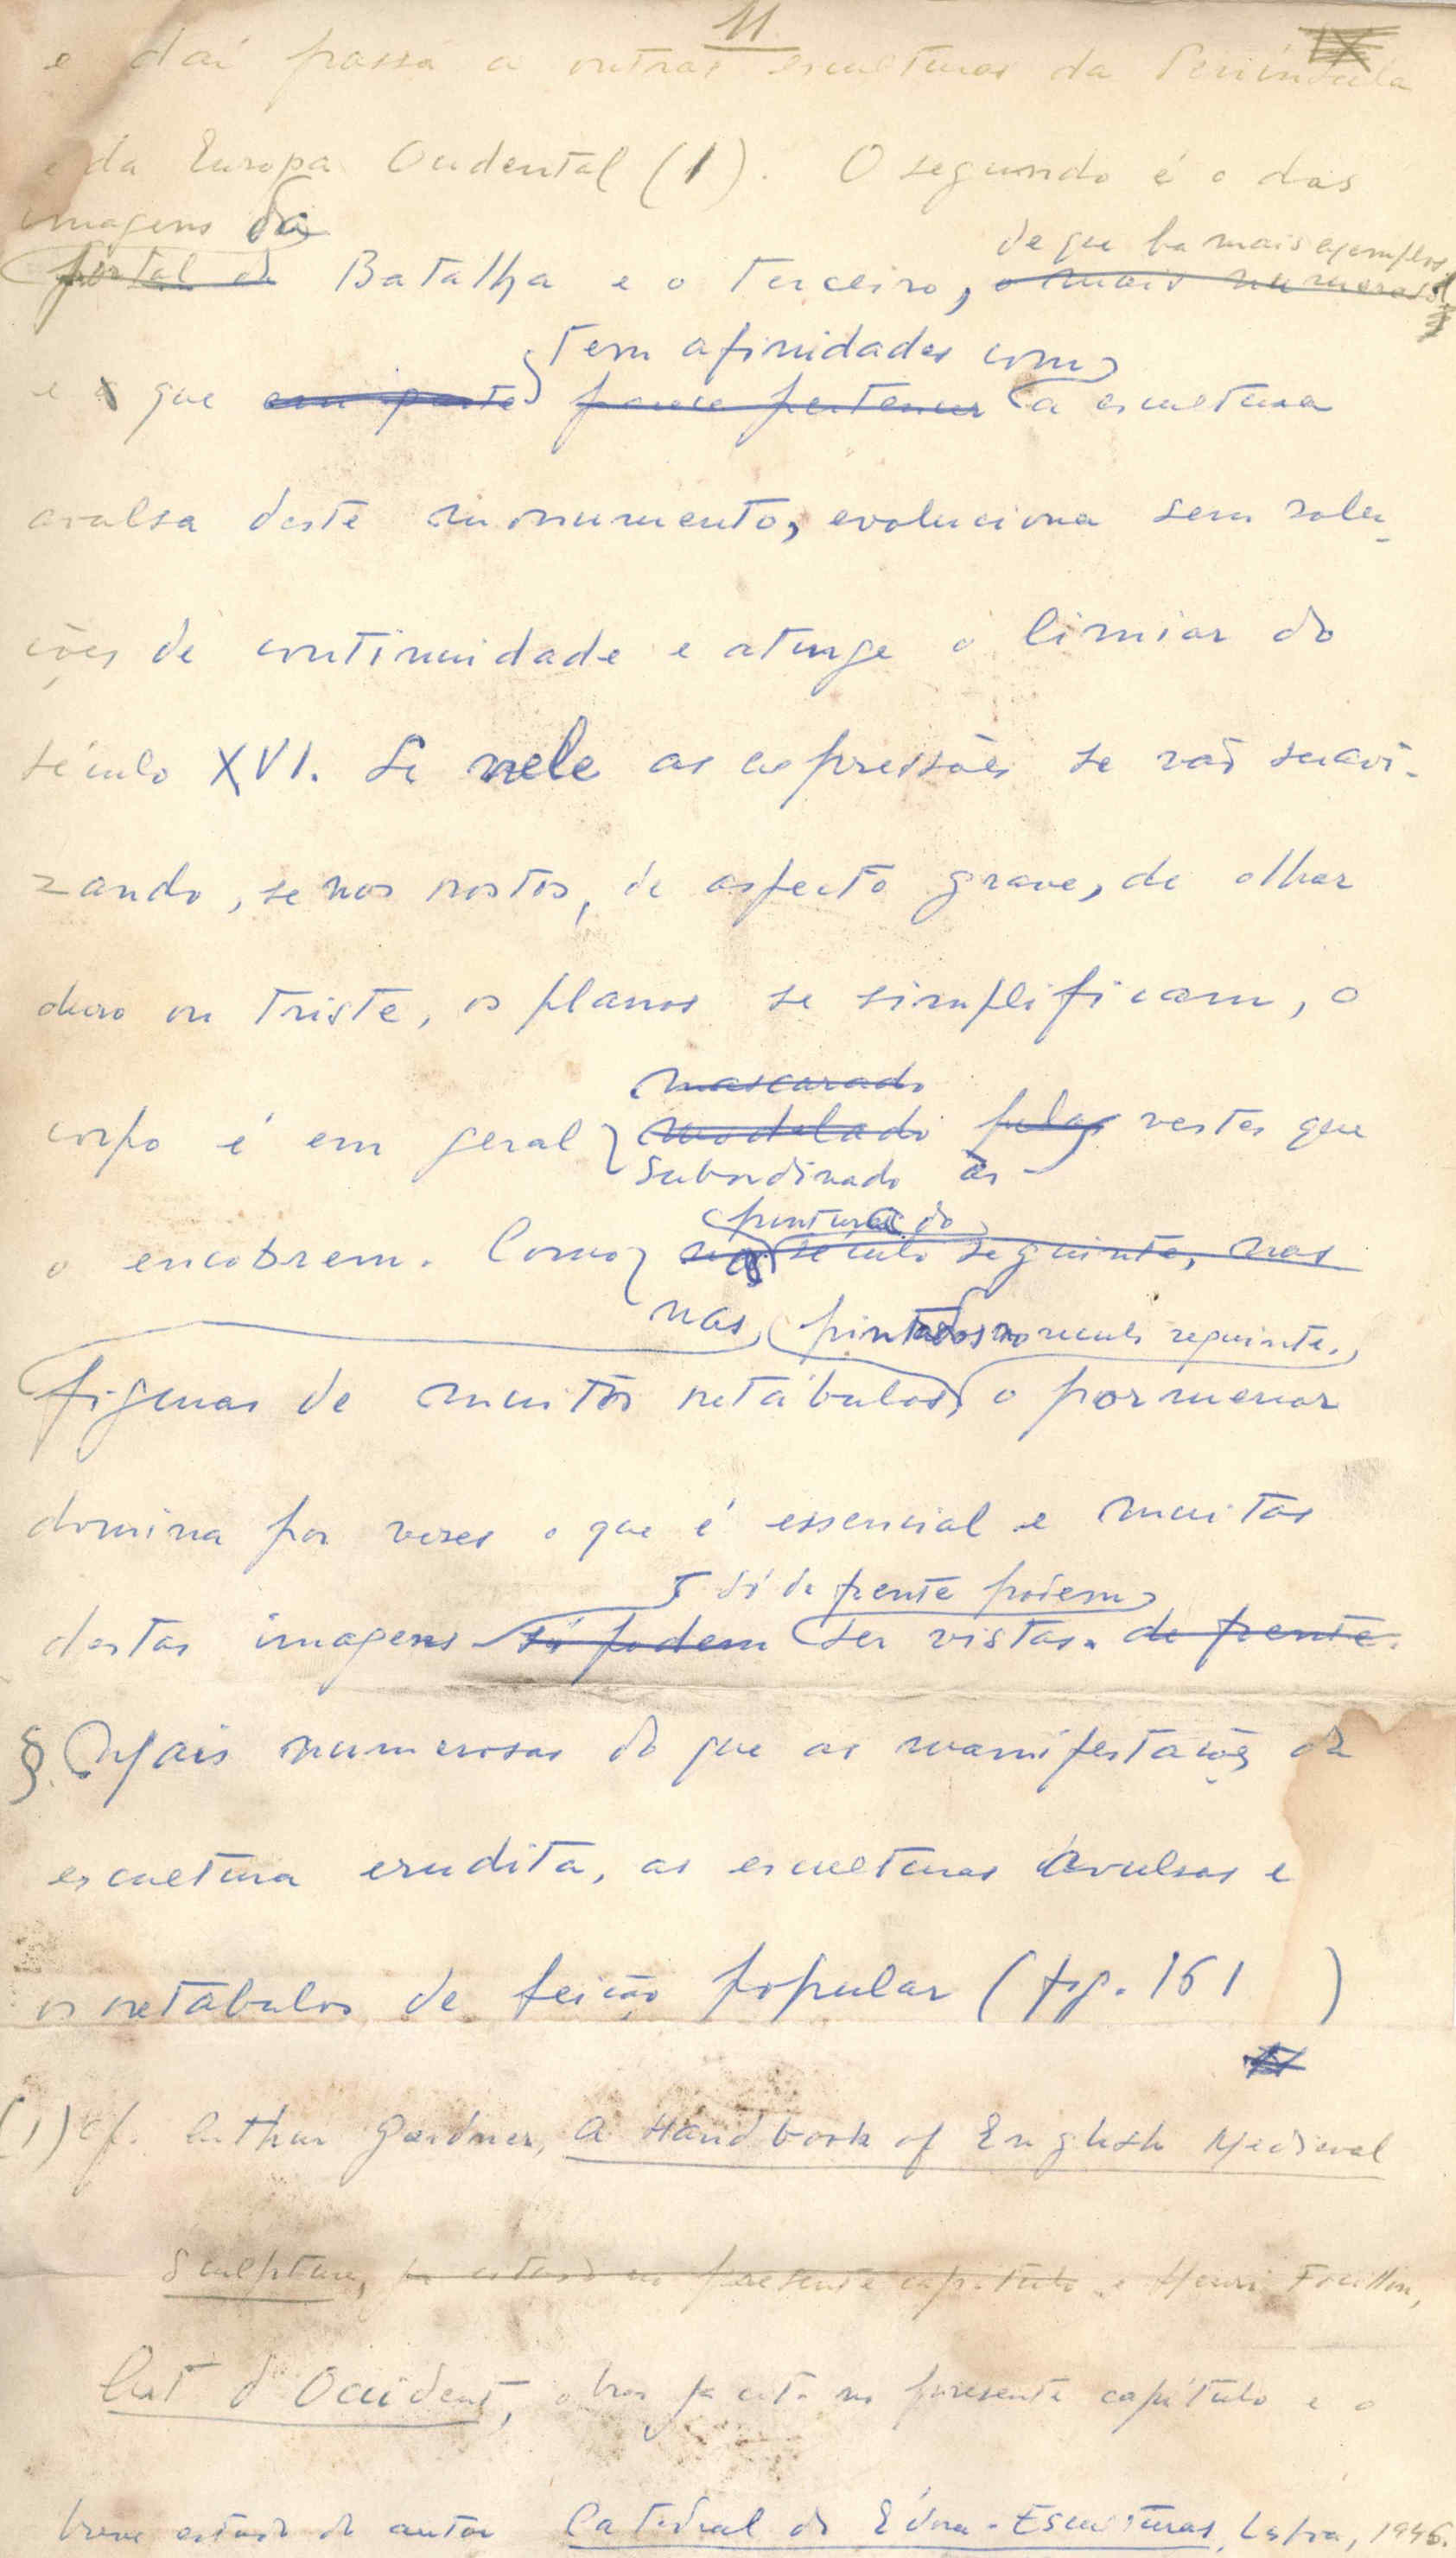 11
IX
e daí passa a outras esculturas da Península
e da Europa Ocidental (1). O segundo é o das
imagens da
de que ha mais exemplos
portal da Batalha e o terceiro, o mais numeroso
tem afinidades com
e o que em parte parece pertencer a escultura
avulsa deste monumento, evoluciona sem solu-
ções de continuidade e atinge o limiar do
século XVI. Se nele as expressões se vão suavi-
zando, se nos rostos, de aspecto grave, de olhar
duro ou triste, os planos se simplificam, o
mascarado
corpo é em geral modelado pelas vestes que
subordinado às
pintura do
o encobrem. Como no século seguinte, nas
nas pintados no seculo seguinte,
figuras de muitos retábulos, o pormenor
domina por vezes o que é essencial e muitas
só de frente podem
destas imagens só podem ser vistas. de frente.
§ Mais numerosas do que as manifestações da
escultura erudita, as esculturas avulsas e
os retábulos de feição popular (fig. 161 )
(1) Cf. Arthur Gardner, A Handbook of English Medieval
Sculpture, já citado no presente capitulo e Henri Focillon,
Art d'Occident, obras já cit. no presente capítulo e o
breve estudo do autor Catedral de Évora - Esculturas, Lisboa, 1946.